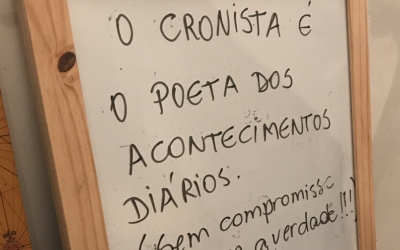 O CRONISTA É
O POETA DOS
ACONTECIMENTOS
DIÁRIOS.
(sem compromisso
a verdade!!!)